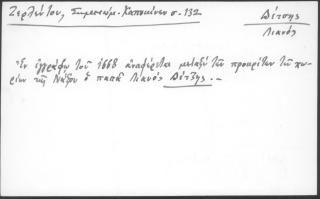 Ζερλέντου, Σημειώμ. Καπουκίνων σ. 132
Δέτσης
Λιανός
Ἐν ἐγγράφῳ τοῦ 1668 ἀναφέρεται μεταξὺ τῶν προκρίτων τῶν χω-
ρίων τῆς Νάξου ὁ παπᾶ Λιανὸς Δέτζης. –